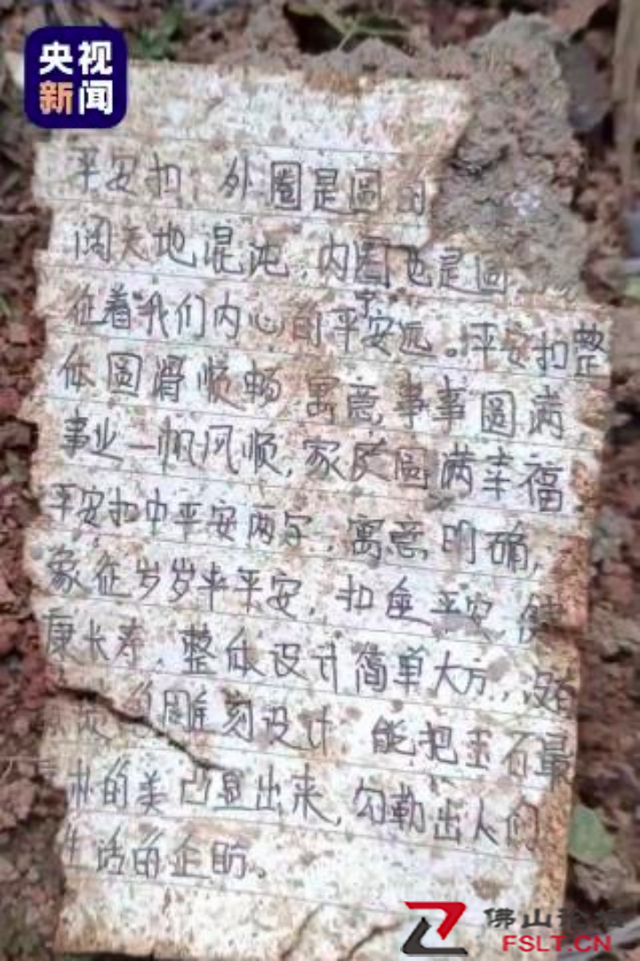 央视
新闻
平安扣，外圈是圆的
阔天地混沌，内圈也是圆
征着我们内心的平安宁远。平安扣整
体圆滑顺畅 寓意，事事圆满，
事业一帆风顺，家庭圆满幸福
平安扣中平安两字，寓意明确，
象征岁岁平安，扣
康长寿，整体设计简单大方，没有
雕刻设计 能把玉石最
的美凸显出来，勾勒出人们
生活的企盼。
佛山论坛
FSLT.CN